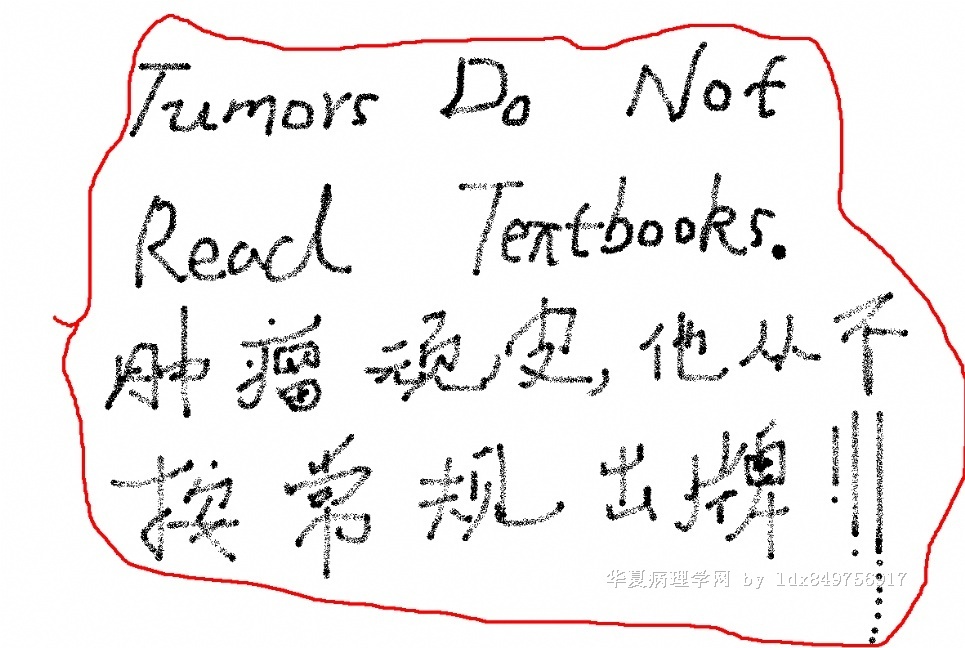 Tumors Do Not
Read Textbooks.
肿瘤顽皮,他从不
按常规出牌!!!
华夏病理学网 by ldx849756917